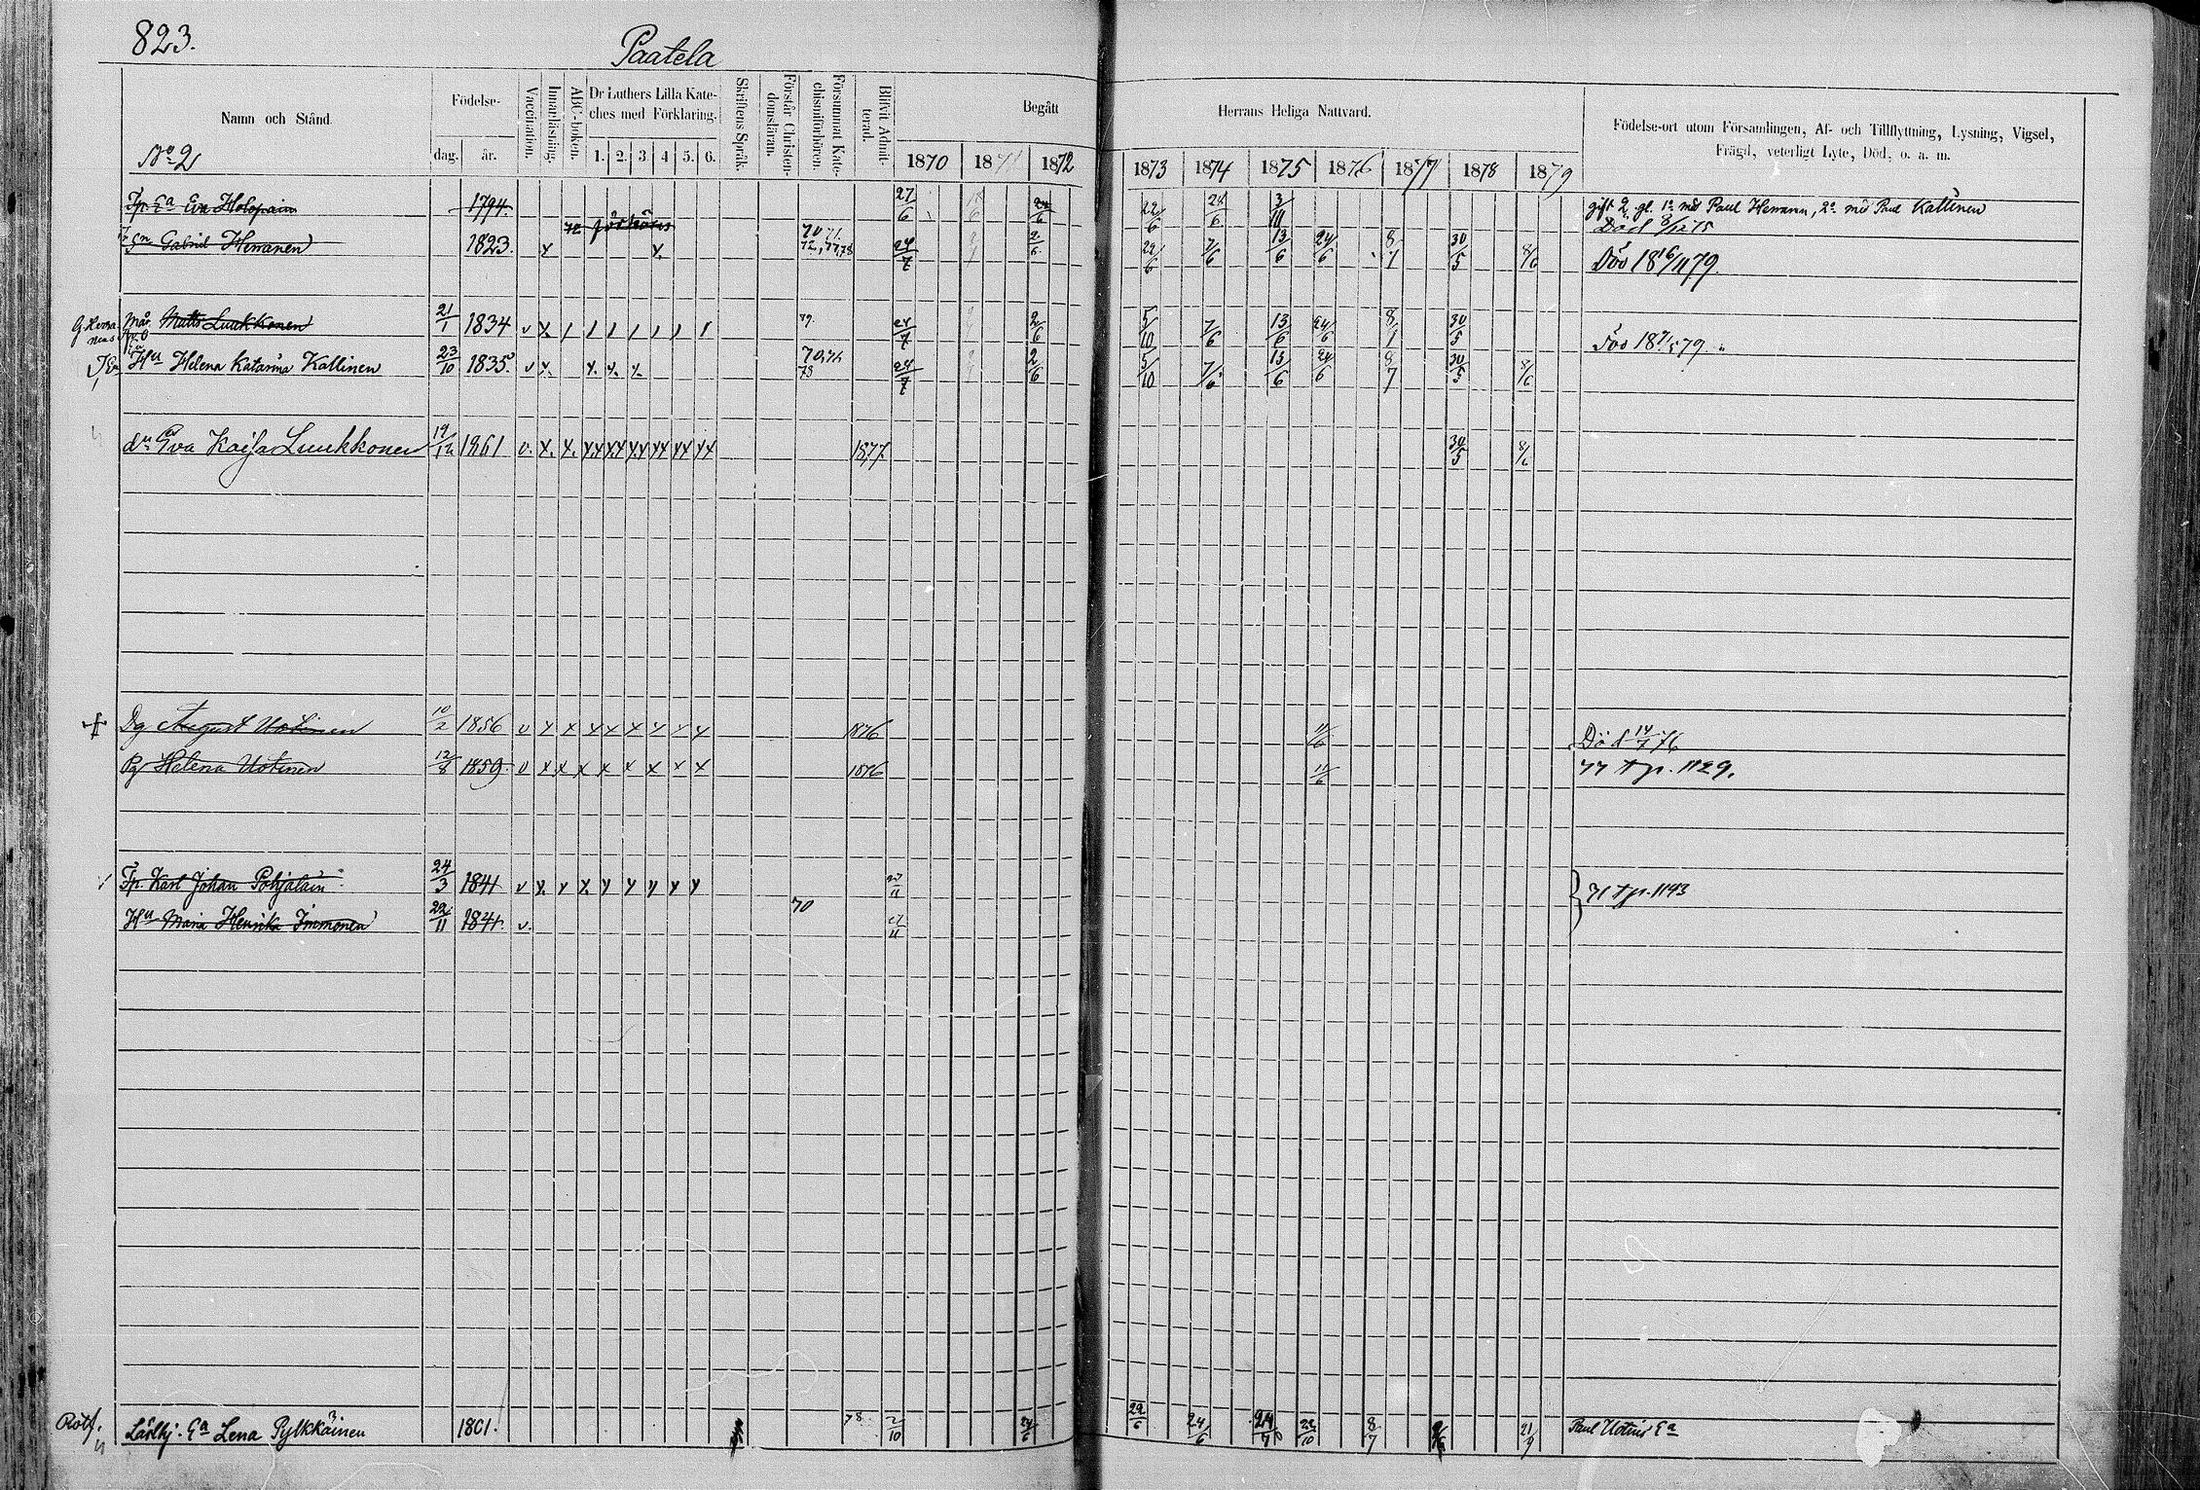 823.
Paatela
Namn och Stånd.
Födelse-
dag.
år.
Vaccination.
Innanläsning.
ABC-boken.
Dr Luthers Lilla Kate-
ches med Förklaring.
1. 2. 3 4 5. 6.
Skriftens Språk.
Förstår Christen-
domsläran.
Försummat Kate-
chismiförhören.
Blifvit Admit-
terad.
Begått
Herrans Heliga Nattvard.
1870 1871 1872
1873 1874 1875 1876 1877 1878 1879
Födelse-ort utom Församlingen, Af- och Tillflyttning, Lysning, Vigsel,
Frägd, veterligt Lyte, Död, o. a. m.
No 2
Eva Holopain 1794. 27/6 22/6 24/6 3/11 gift 2 gl. 1o med Paul Hernanen, 2o med Paul Kallinen
Död 8/12 75
Gabriel Hernanen 1823. x x. 24/7 2/6 22/6 7/6 13/6 24/6 8/7 30/5 8/6 Död 18 16/11 79.
Måg Matts Luukkonen 21/1 1834 v x 79. 24/7 2/6 5/10 7/6 13/6 24/6 8/7 30/5
Hu Helena Katarina Kallinen 23/10 1835. v x. x. x. x. 24/7 2/6 5/10 7/6 13/6 24/6 8/7 30/5 8/6
dr Eva Kaisa Luukkonen 19/12 1861 v. x. x. xx xx xx xx xx xx 1877 30/5 8/6
Dg August Uotinen 10/2 1856 v x x x x x x x x 1876 11/6 Död 14/7 76
Pg Helena Uotinen 12/8 1859. v x x x x x x x x 1876 11/6 77 Ap. 1129.
Karl Johan Pohjalain 24/3 1841 v x. v x y y y y y 27/11 71 Ap. 1143
70
Hu Maria Henrika Immonen 22/11 1841. v. 27/11
Rotf.
Ea Lena Pylkkäinen 1801. 78. 2/10 24/6 22/6 24/6 24/7 22/10 8/7 21/9 Paul Uotins Ea